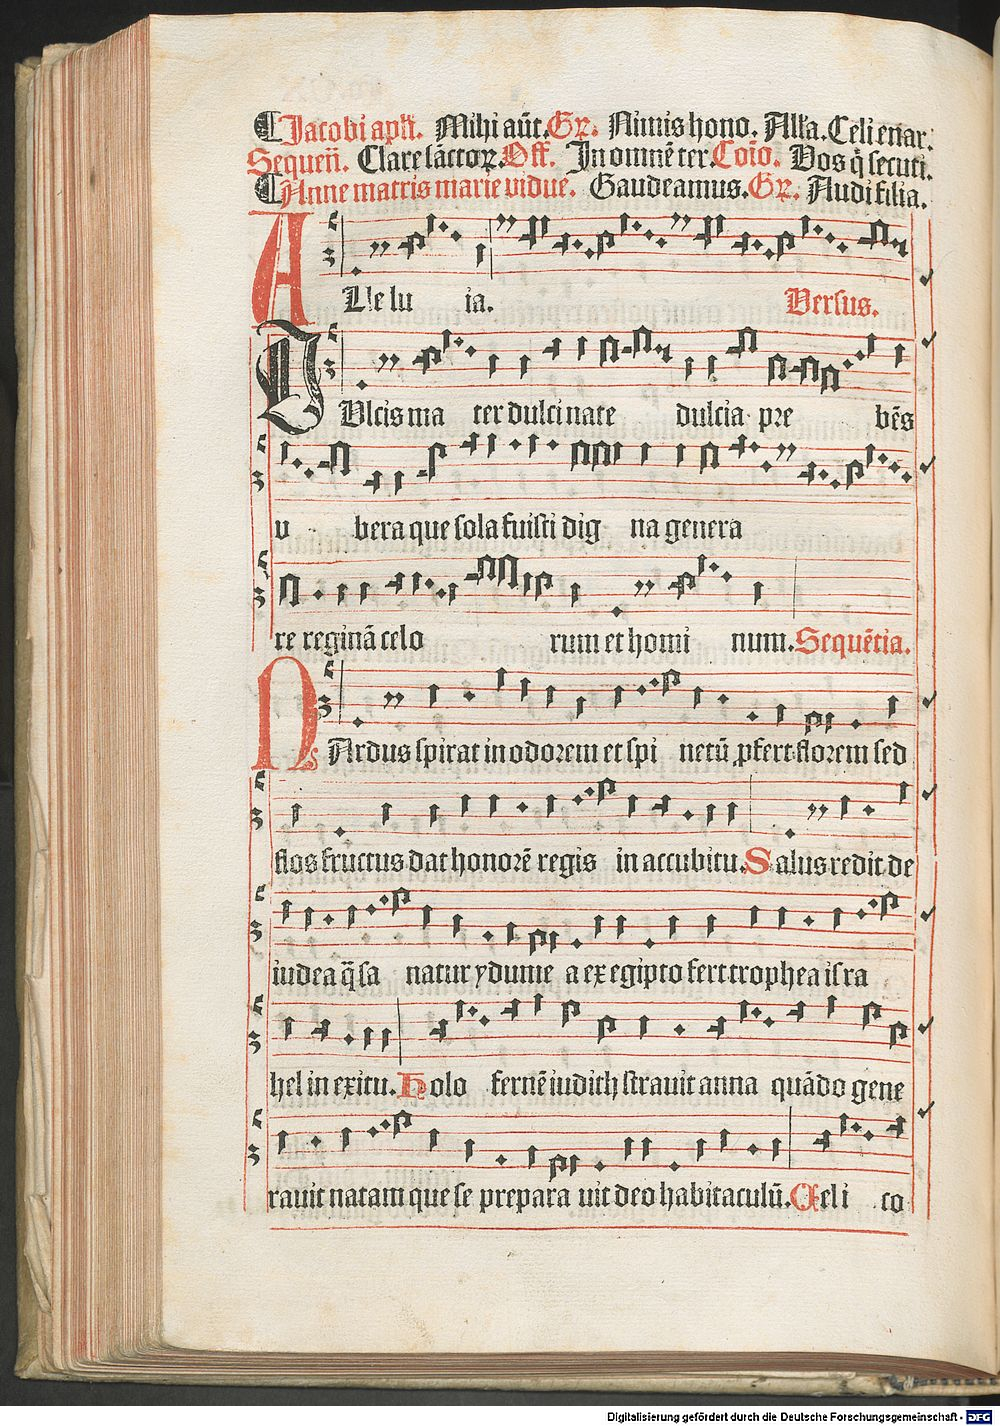 Jacobi apłi. Mihi aūt. Gr̄. Nimis hono. Alła. Celi enar.
Sequen̄. Clare sāctoꝝ. Off. In omnē ter. Coīo. Vos q̄ secuti.
Anne matris marie vidue. Gaudeamus. Gr̄. Audi filia.
ALle lu ia. Versus.
DUlcis ma ter dulci nate dulcia pre bēs
u bera que sola fuisti dig na genera
re reginā celo rum et homi num. Sequētia.
NArdus spirat in odorem et spi netū ꝓfert florem sed
flos fructus dat honorē regis in accubitu. Salus redit de
iudea q̄ sa natur ydume a ex egipto fert trophea isra
hel in exitu. Holo fernē iudich stravit anna quādo gene
ravit natam que se prepara vit deo habitaculū. Celi co
Digitalisierung gefördert durch die Deutsche Forschungsgemeinschaft - DFG